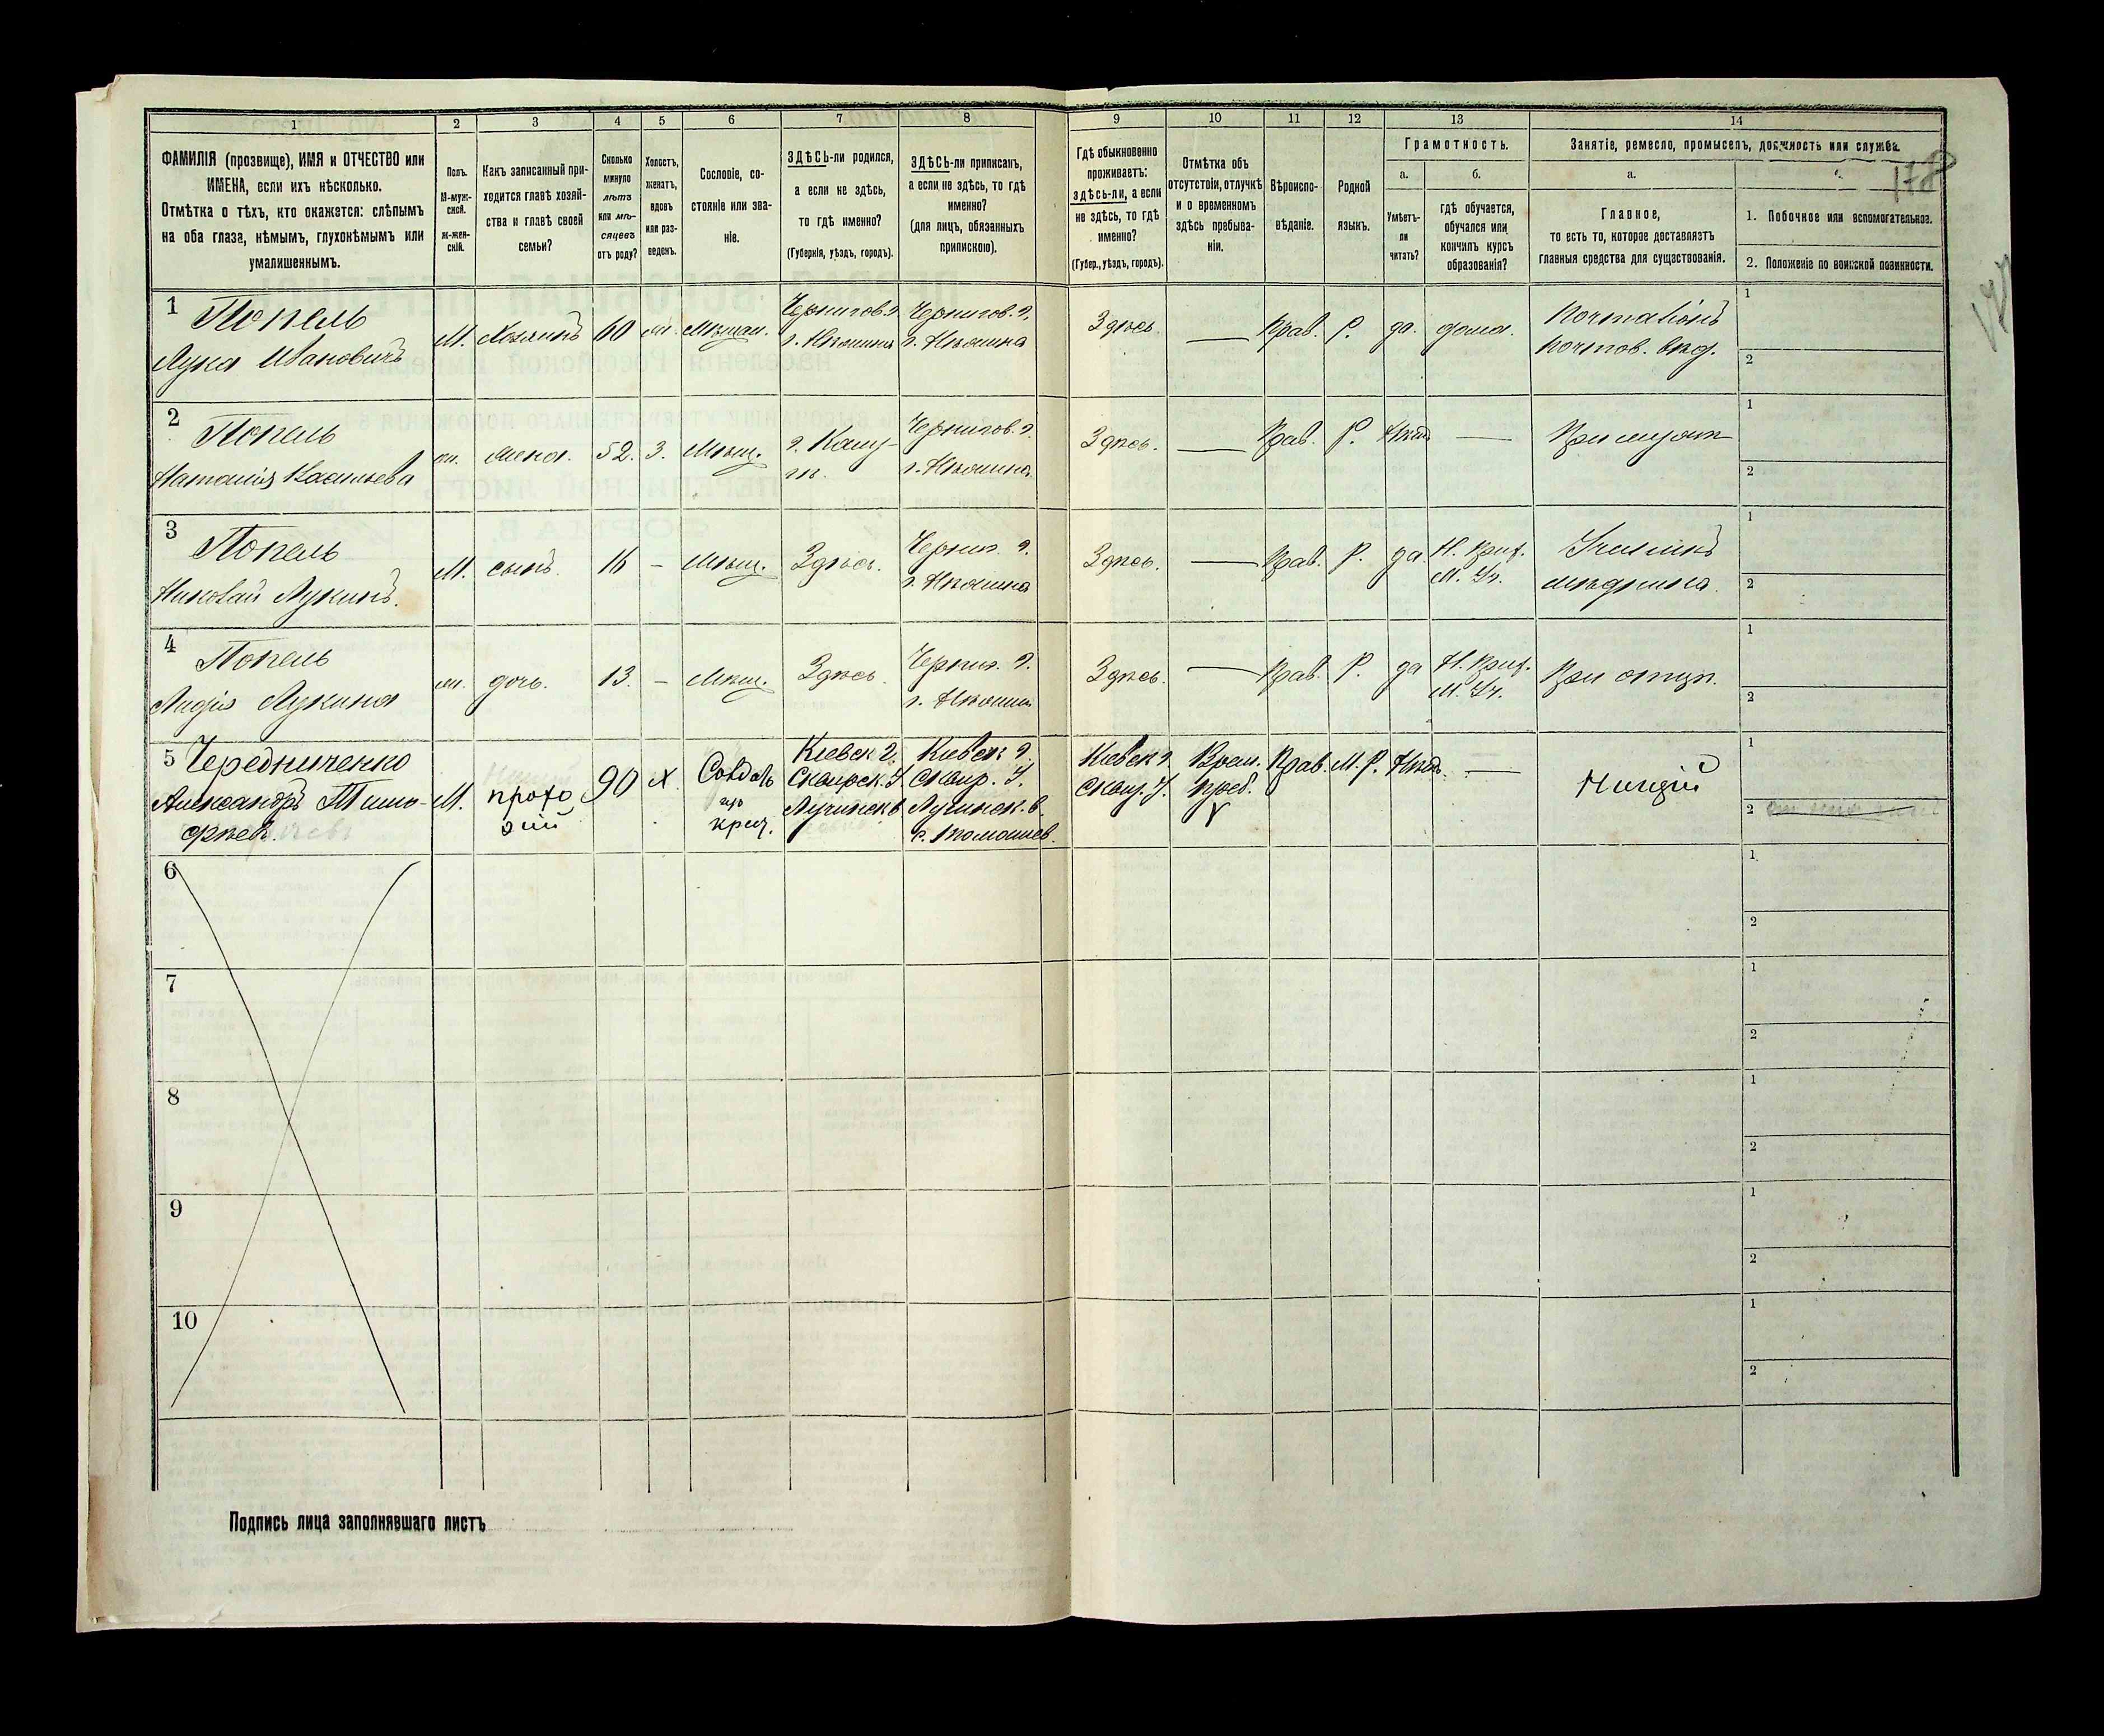 1 2 3 4 5 6 7 8 9 10 11 12 13 14
ФАМИЛІЯ (прозвище), ИМЯ и ОТЧЕСТВО или
ИМЕНА, если ихъ нѣсколько.
Отмѣтка о тѣхъ, кто окажется: слѣпымъ
на оба глаза, нѣмымъ, глухонѣмымъ или
умалишеннымъ.
Полъ.
М-муж-
ской.
Ж-жен-
скій.
Какъ записанный при-
ходится главѣ хозяй-
ства и главѣ своей
семьи?
Сколько
минуло
лѣтъ
или мѣ-
сяцевъ
отъ роду?
Холостъ,
женатъ,
вдовъ
или раз-
веденъ.
Сословіе, со-
стояніе или зва-
ніе.
ЗДѢСЬ-ли родился,
а если не здѣсь,
то гдѣ именно?
(Губернія, уѣздъ, городъ).
ЗДѢСЬ-ли приписанъ,
а если не здѣсь, то гдѣ
именно?
(для лицъ, обязанныхъ
припискою).
Гдѣ обыкновенно
проживаетъ:
здѣсь-ли, а если
не здѣсь, то гдѣ
именно?
(Губер., уѣздъ, городъ).
Отмѣтка объ
отсутствіи, отлучкѣ
и о временномъ
здѣсь пребыва-
ніи.
Вѣроиспо-
вѣданіе.
Родной
языкъ.
Грамотность.
а. б.
Умѣетъ-
ли
читать?
гдѣ обучается,
обучался или
кончилъ курсъ
образованія?
Занятіе, ремесло, промыселъ, должность или служба.
а.
178
Главное,
то есть то, которое доставляетъ
главныя средства для существованія.
1. Побочное или вспомогательное.
2. Положеніе по воинской повинности.
1 Попель М. Хозяинъ 60 Мѣщан. Чернигов. г. Чернигов. г. Здѣсь. — Прав. Р. да. дома. 1
Лука Ивановичъ г. Нѣжина г. Нѣжина почтов. вѣд. 2
2 Попель жена. 52. З. Мѣщ. Чернигов. г. Здѣсь. — Прав. Р. Нѣтъ — При мужѣ 1
Наталія Васильева г. Нѣжина 2
3 Попель М. сынъ. 16 – Мѣщ. Здѣсь. Черниг. г. Здѣсь. — Прав. Р. да Н. Приг. 1
Николай Лукинъ. г. Нѣжина М. Уч. 2
4 Попель дочь. 13. – Мѣщ. Здѣсь. Черниг. г. Здѣсь. — Прав. Р. да Н. Приг. При отцѣ. 1
Лидія Лукина г. Нѣжин М. Уч. 2
5 Чередниченко М. прохо 90 Х. Кіевск г. Кіевск г. Кіевск г. Врем. Прав. М. Р. Нѣтъ. — Нищій 1
Александръ Тимо- жій Сквирск. У. Сквир. У. Сквир. У. преб. 2
фѣев. крест.
6 1 2
7 1 2
8 1 2
9 1 2
10 1 2
Подпись лица заполнявшаго листъ